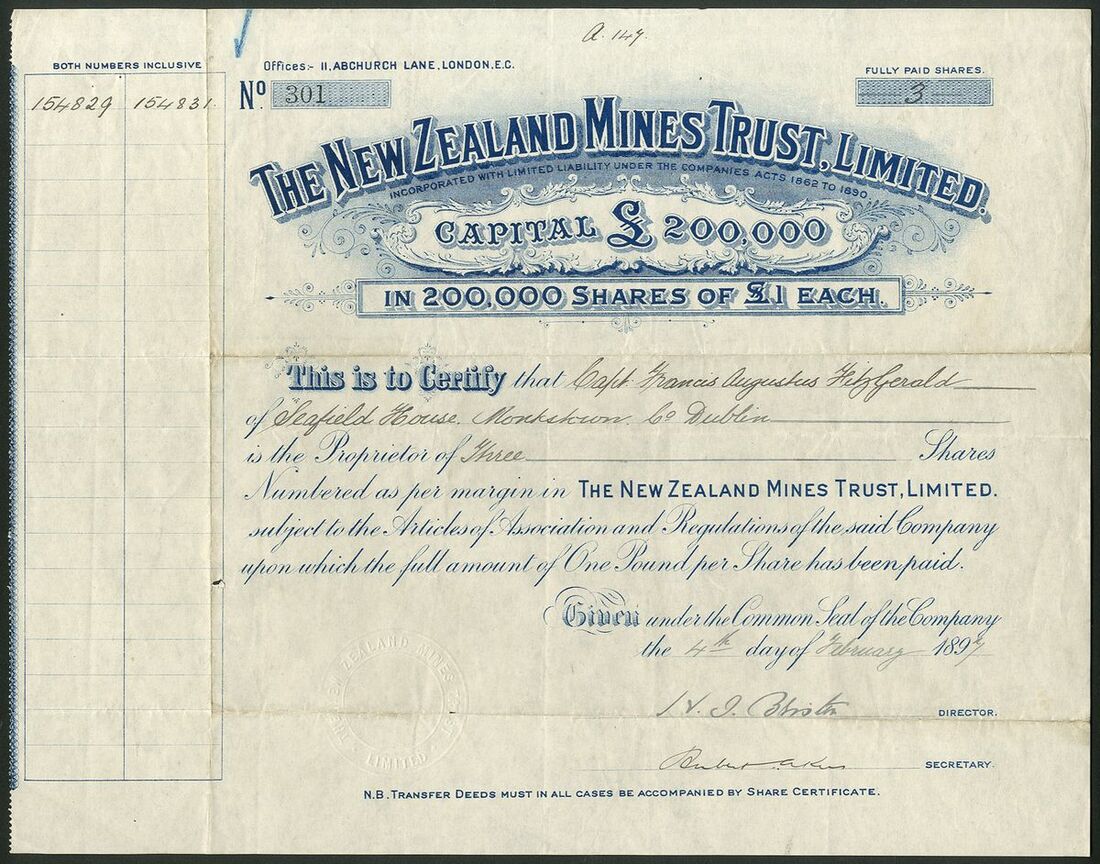 A. 147.
BOTH NUMBERS INCLUSIVE
154829 154831
Offices:- 11, ABCHURCH LANE, LONDON. E.C.
No 301
FULLY PAID SHARES.
3
THE NEW ZEALAND MINES TRUST, LIMITED.
INCORPORATED WITH LIMITED LIABILITY UNDER THE COMPANIES ACTS 1862 TO 1890
CAPITAL £ 200,000
IN 200,000 SHARES OF £1 EACH.
This is to Certify that Capt. Francis Augustus FitzGerald
of Seafield House. Monkstown. Co Dublin
is the Proprietor of Three Shares
Numbered as per margin in THE NEW ZEALAND MINES TRUST, LIMITED.
subject to the Articles of Association and Regulations of the said Company
upon which the full amount of One Pound per Share has been paid.
Given under the Common Seal of the Company
the 4th day of February 1897
DIRECTOR.
SECRETARY.
THE NEW ZEALAND MINES TRUST LIMITED
N.B. TRANSFER DEEDS MUST IN ALL CASES BE ACCOMPANIED BY SHARE CERTIFICATE.